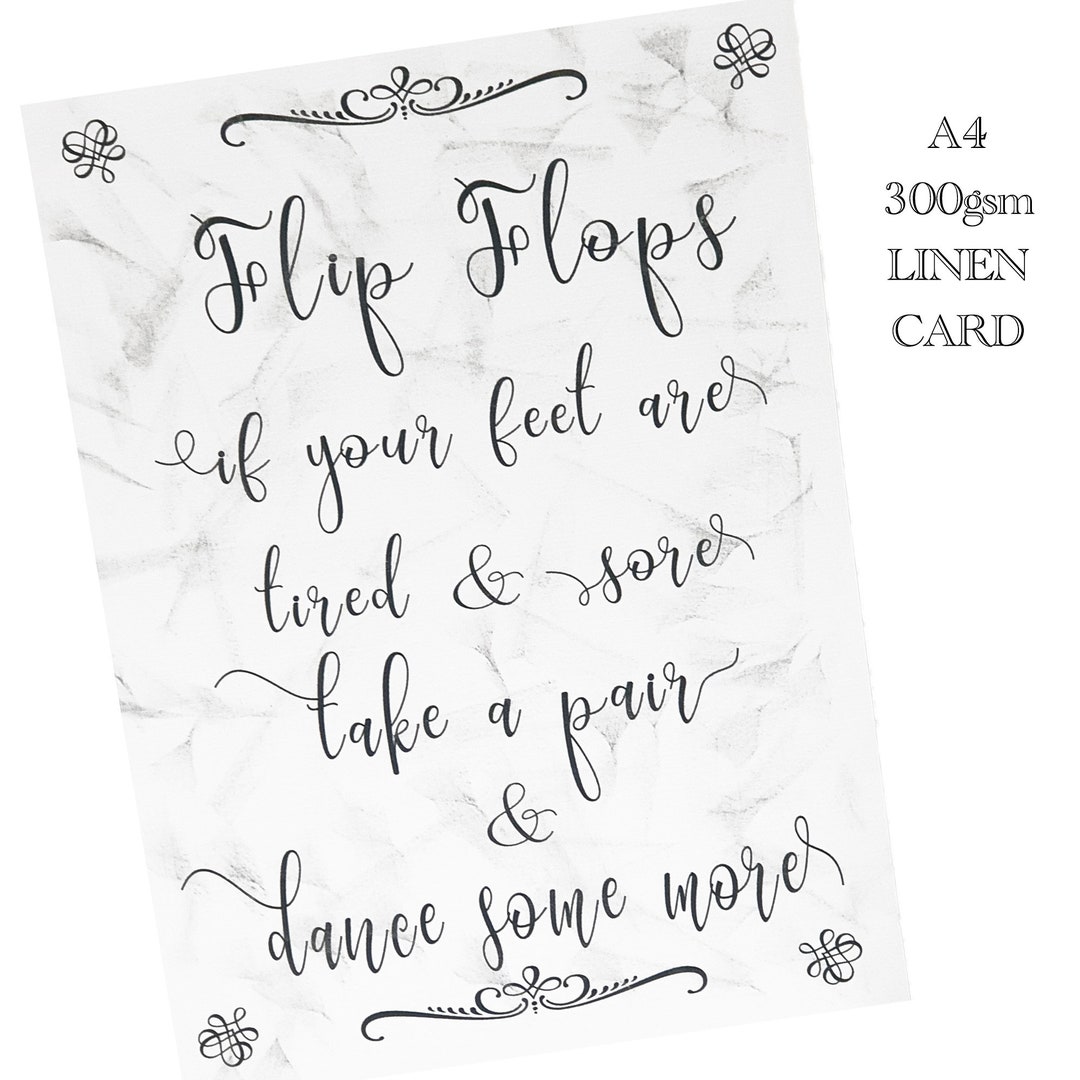 Flip Flops
if your feet are
tired & sore
take a pair
&
dance some more
A4
300gsm
LINEN
CARD